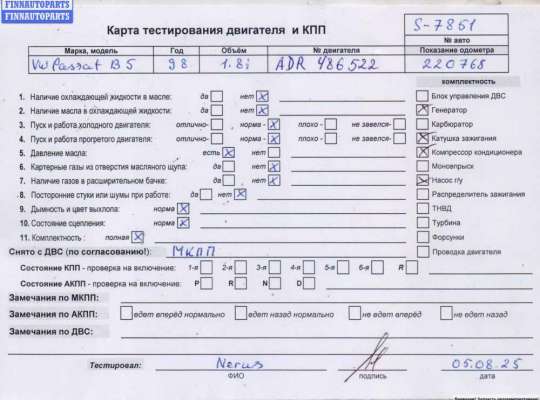 FINNAUTOPARTS
FINNAUTOPARTS
Карта тестирования двигателя и КПП
S-7851
№ авто
Марка, модель Год Объём № двигателя Показание одометра
VW Passat B5 98 1.8i ADR 486522 220768
комплектность
1. Наличие охлаждающей жидкости в масле: да нет X Блок управления ДВС
2. Наличие масла в охлаждающей жидкости: да нет X Генератор
3. Пуск и работа холодного двигателя: отлично- норма - X плохо - не завелся- Карбюратор
4. Пуск и работа прогретого двигателя: отлично- норма - X плохо - не завелся- Катушка зажигания
5. Давление масла: есть X нет Компрессор кондиционера
6. Картерные газы из отверстия масляного щупа: да нет X Моновпрыск
7. Наличие газов в расширительном бачке: да нет X Насос г/у
8. Посторонние стуки или шумы при работе: да нет X Распределитель зажигания
9. Дымность и цвет выхлопа: норма X ТНВД
10. Состояние сцепления: норма X Турбина
11. Комплектность : полная X Форсунки
Снято с ДВС (по согласованию!): МКПП Проводка двигателя
Состояние КПП - проверка на включение: 1-я 2-я 3-я 4-я 5-я 6-я R
Состояние АКПП - проверка на включение: P R N D
Замечания по МКПП:
Замечания по АКПП: едет вперёд нормально едет назад нормально не едет вперёд не едет назад
Замечания по ДВС:
Тестировал: 05.08.25
ФИО подпись дата